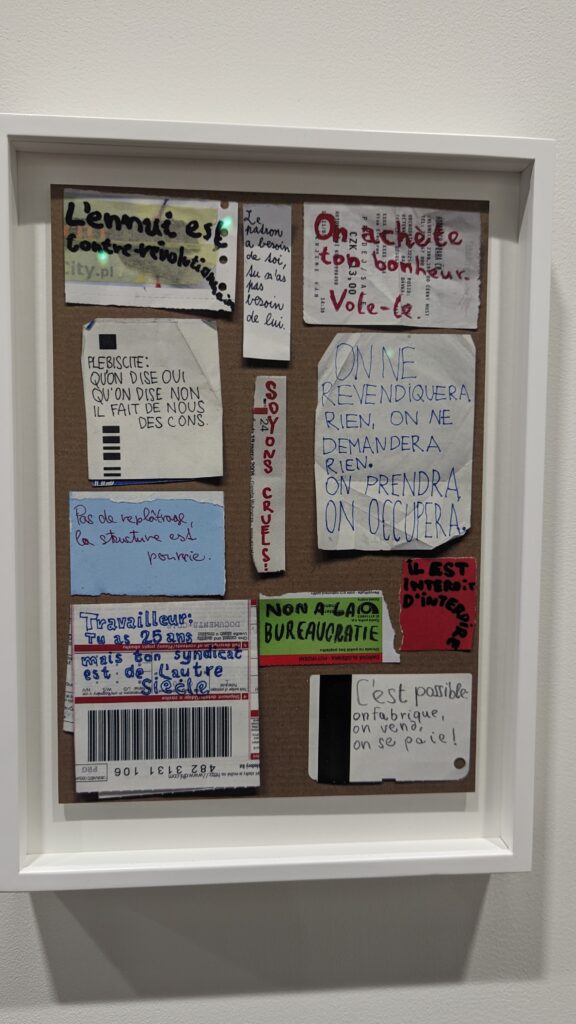 L'ennui est
contre-révolutionnaire
City.pl
Le
patron
a besoin
de toi,
tu n'as
pas
besoin
de lui.
On achète
ton bonheur.
Vole-le.
CZK
PLEBISCITE:
QU'ON DISE OUI
QU'ON DISE NON
IL FAIT DE NOUS
DES CONS.
SOYONS CRUELS!
24
ON NE
REVENDIQUERA
RIEN, ON NE
DEMANDERA
RIEN.
ON PRENDRA,
ON OCCUPERA.
Pas de replâtrage,
la structure est
pourrie.
IL EST
INTERDIT
D'INTERDIRE
NON A LA
BUREAUCRATIE
Travailleur:
Tu as 25 ans
mais ton syndicat
est de l'autre
Siècle
DOCUMENTS
482 3131 106
PRG
C'est possible
on fabrique,
on vend,
on se paie!